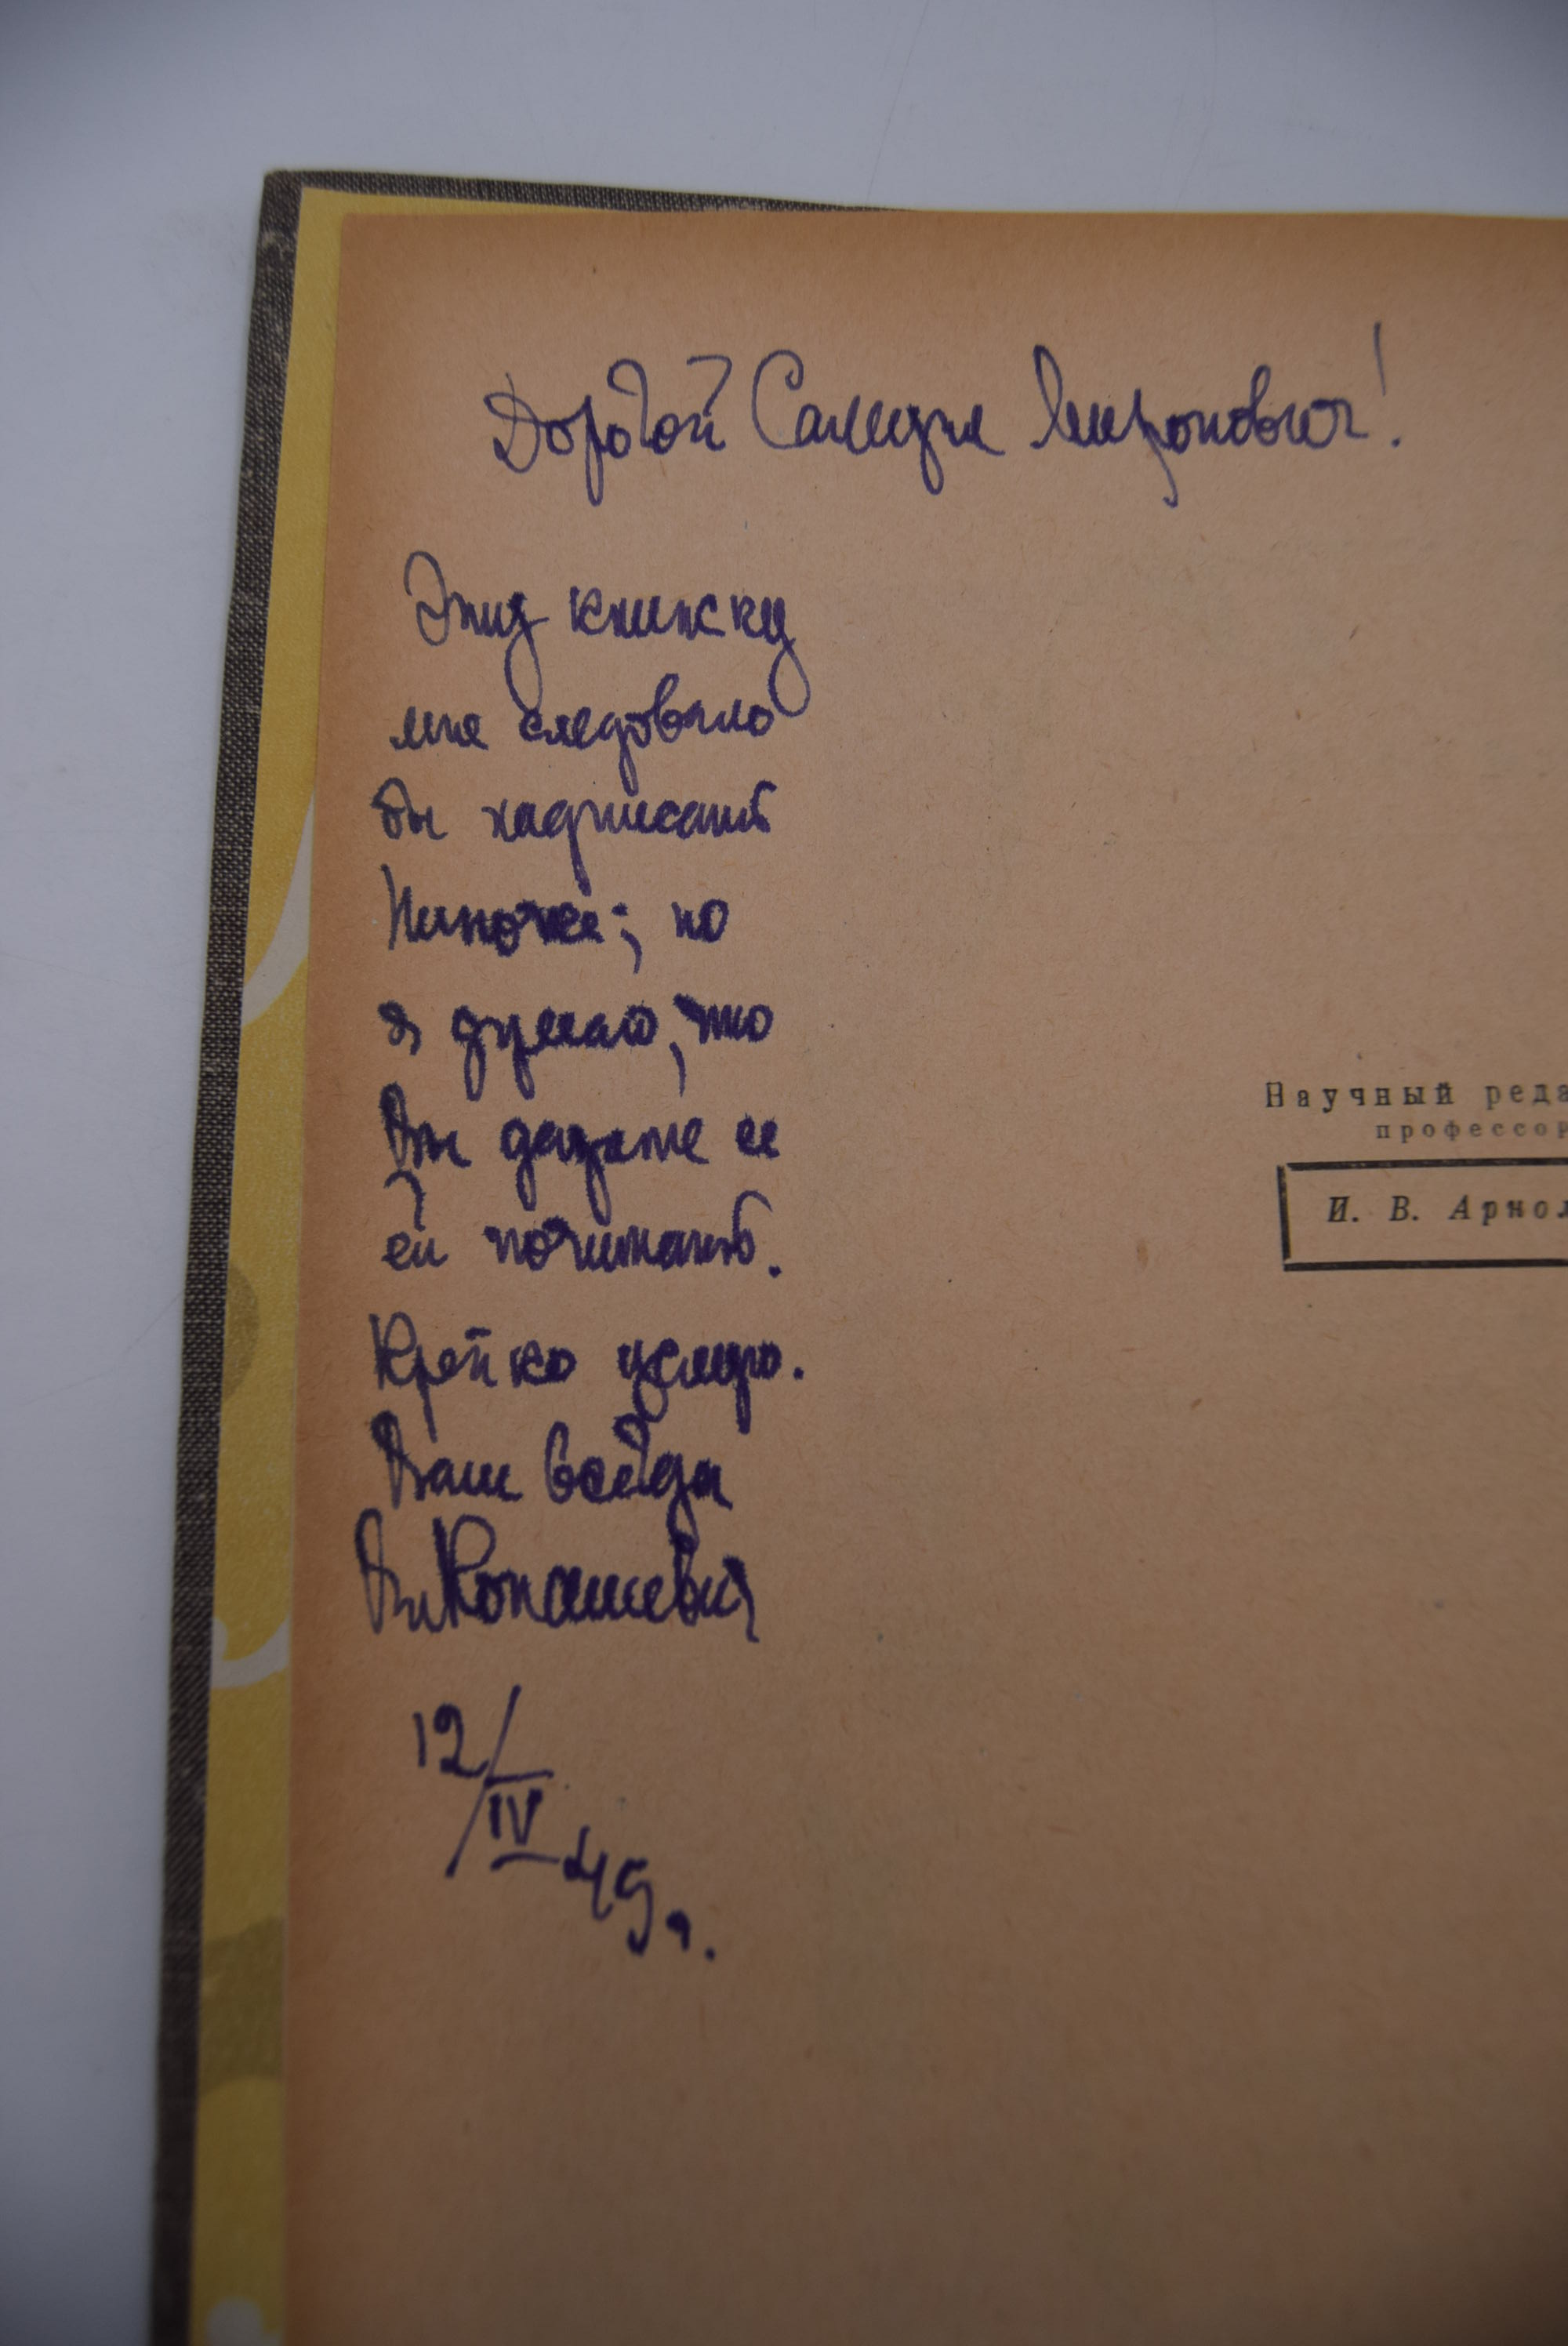 Дорогой Самуил Миронович!
Эту книжку
мне следовало
бы надписать
Ниночке; но
я думаю, что
Вы дадите ее
ей почитать.
Крепко целую.
Ваш всегда
Вл Конашевич
12/IV 49 г.
Научный реда
профессор
И. В. Арнол